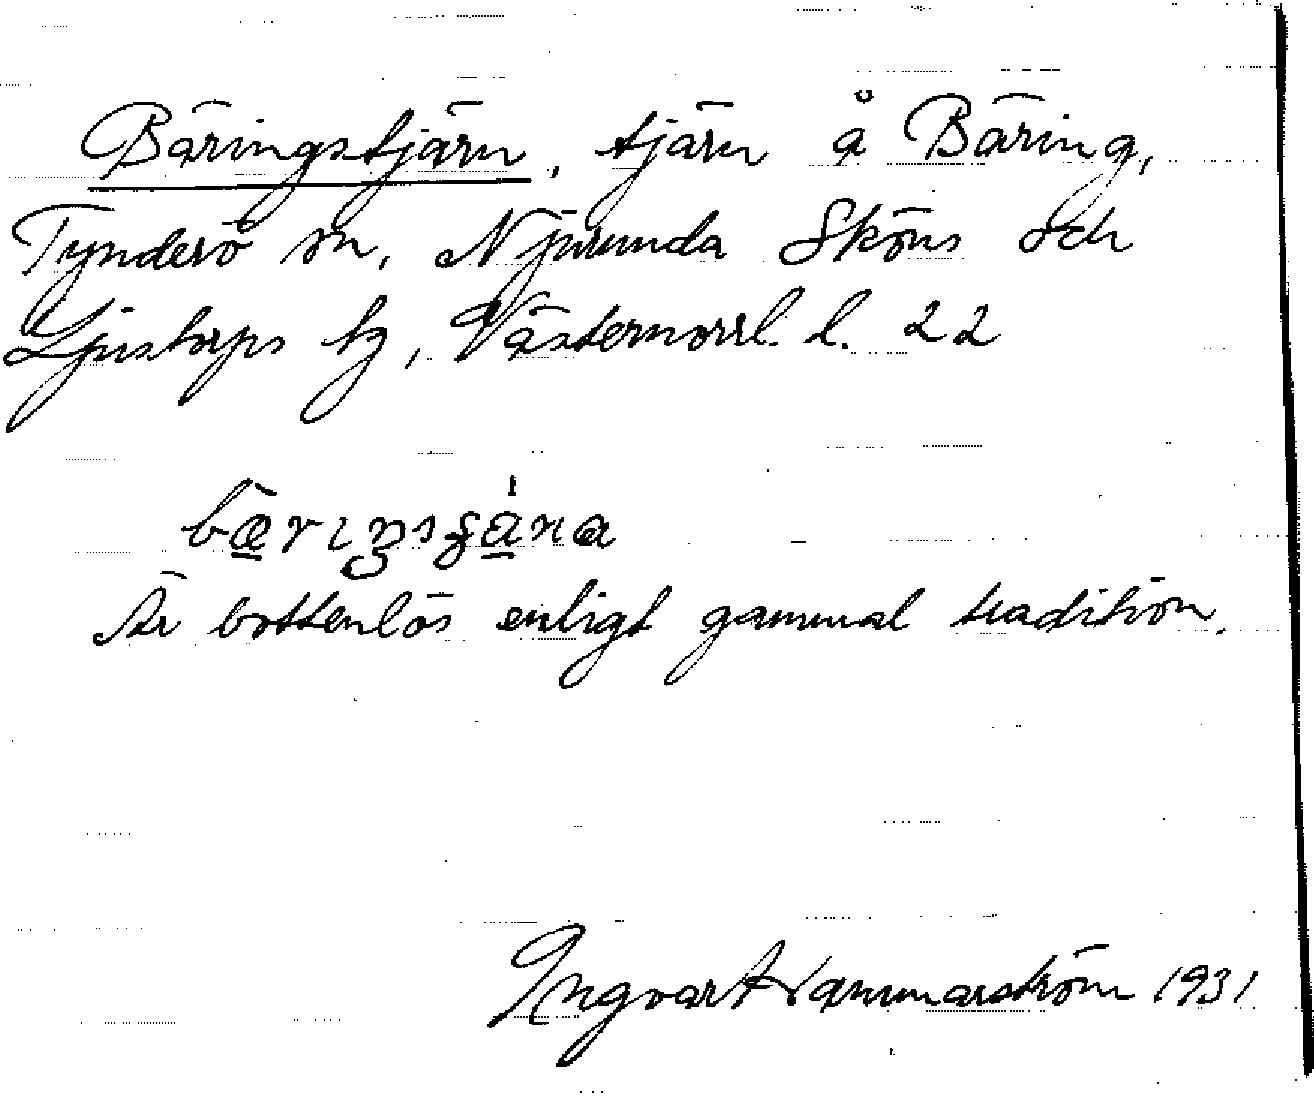 Bäringstjärn, tjärn å Bäring,
Tynderö sn, Njurunda Sköns och
Ljustorps tg, Västernorrl. l. 22
Är bottenlös enligt gammal tradition.
Ingvar Hammarström 1931